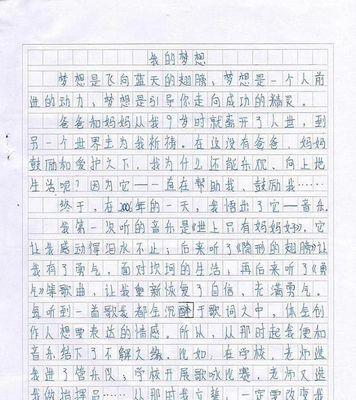 我的梦想
梦想是飞向蓝天的翅膀，梦想是一个人前
进的动力，梦想是引导你走向成功的精灵。
爸爸和妈妈从我9岁时就离开了人世，到
另一个世界去为我祈祷。在这没有爸爸，妈妈
鼓励和爱护之下，我为什么还能乐观、向上地
生活呢？因为它一直在帮助我、鼓励我……
终于，在2006年的一天，我悟出了它——音乐
我第一次听的音乐是《世上只有妈妈好》，它
让我感动得泪水不止；后来听了《隐形的翅膀》让
我有了勇气，面对坎坷的生活；再后来听了《勇
气》等歌曲，让我重新恢复了自信，充满勇气。
每听到一首歌我都会沉醉于歌词文中，体会创
作人想要表达的情感。所以，从那时起我便和
音乐结下了不解之缘。比如，在学校，老师选
我进了管乐队；学校开展歌咏比赛，老师又选
我做指挥员……从那时我立誓，一定要改变我